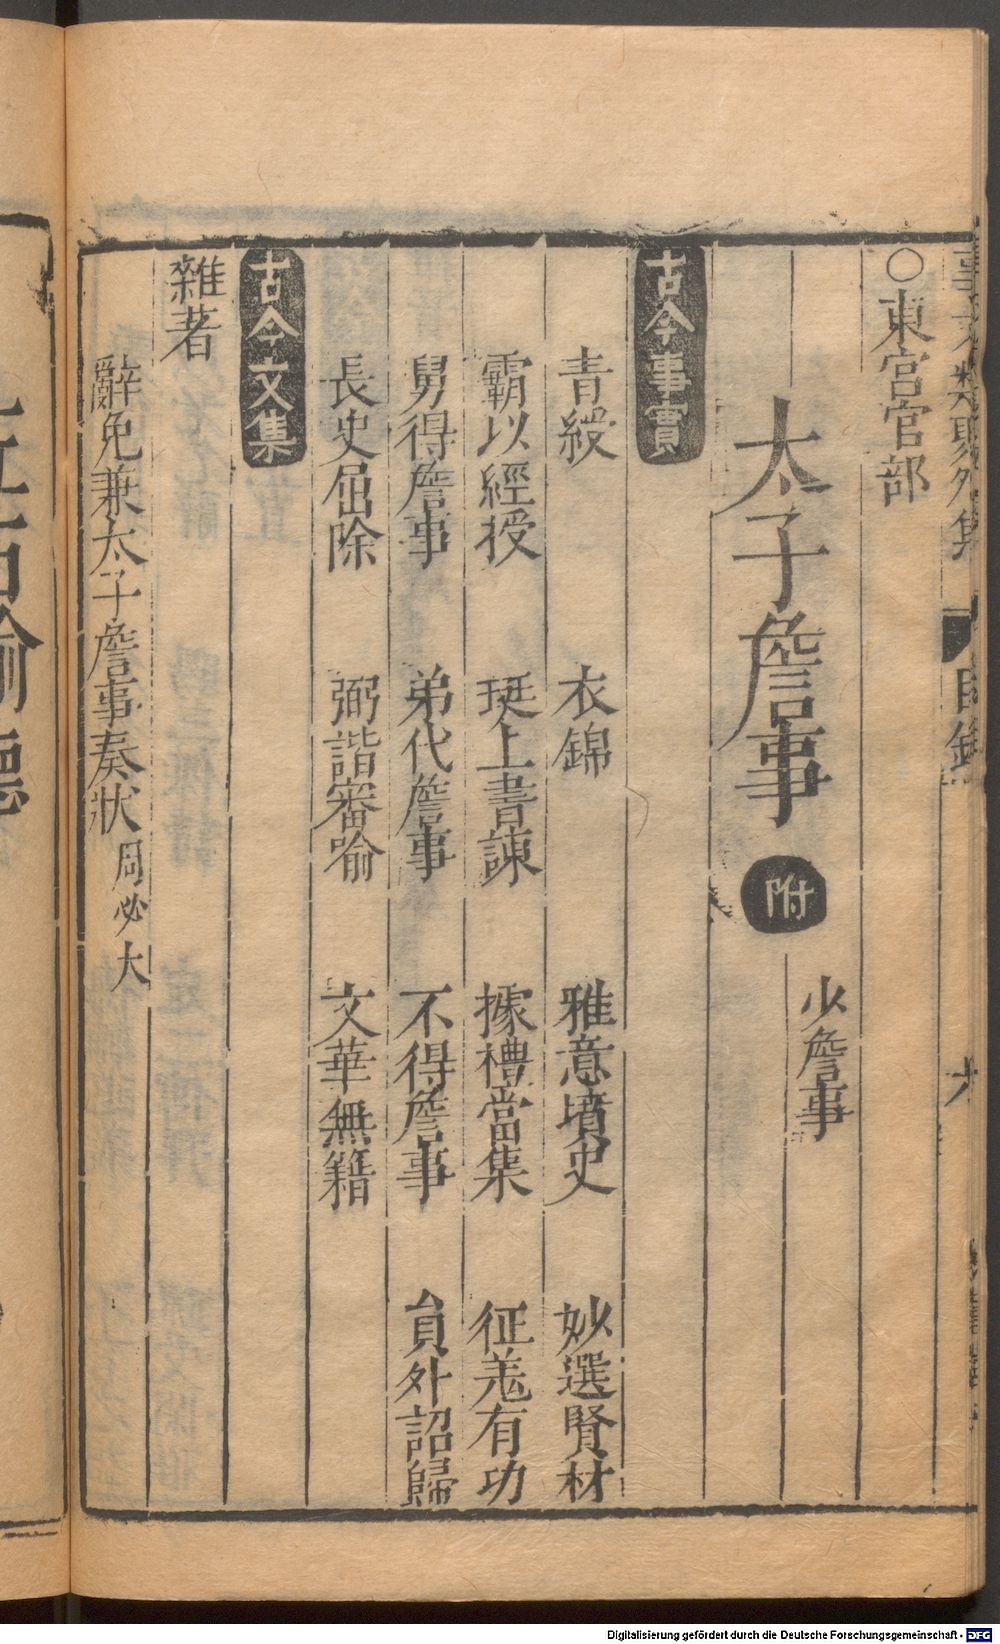 ○東宮官部
太子詹事 附 少詹事
古今事實
青綬 衣錦 雅意墳史 妙選賢材
霸以經授 珽上書諫 據槽當集 征羗有功
舅得詹事 弟代詹事 不得詹事 員外詔歸
長史屈除 弼諧審喻 文華無籍
古今文集
雜著
辭免兼太子詹事奏狀 周必大
Digitalisierung gefördert durch die Deutsche Forschungsgemeinschaft - DFG